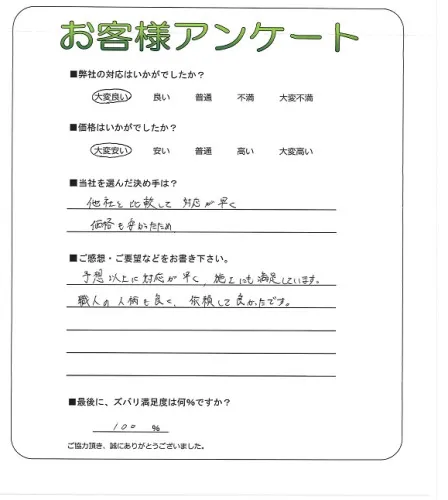 お客様アンケート
■弊社の対応はいかがでしたか？
大変良い 良い 普通 不満 大変不満
■価格はいかがでしたか？
大変安い 安い 普通 高い 大変高い
■当社を選んだ決め手は？
他社と比較して 対応が早く
価格も安かったため
■ご感想・ご要望などをお書き下さい。
予想以上に対応が早く、施工にも満足しています。
職人の人柄も良く、依頼して良かったです。
■最後に、ズバリ満足度は何％ですか？
100 ％
ご協力頂き、誠にありがとうございました。